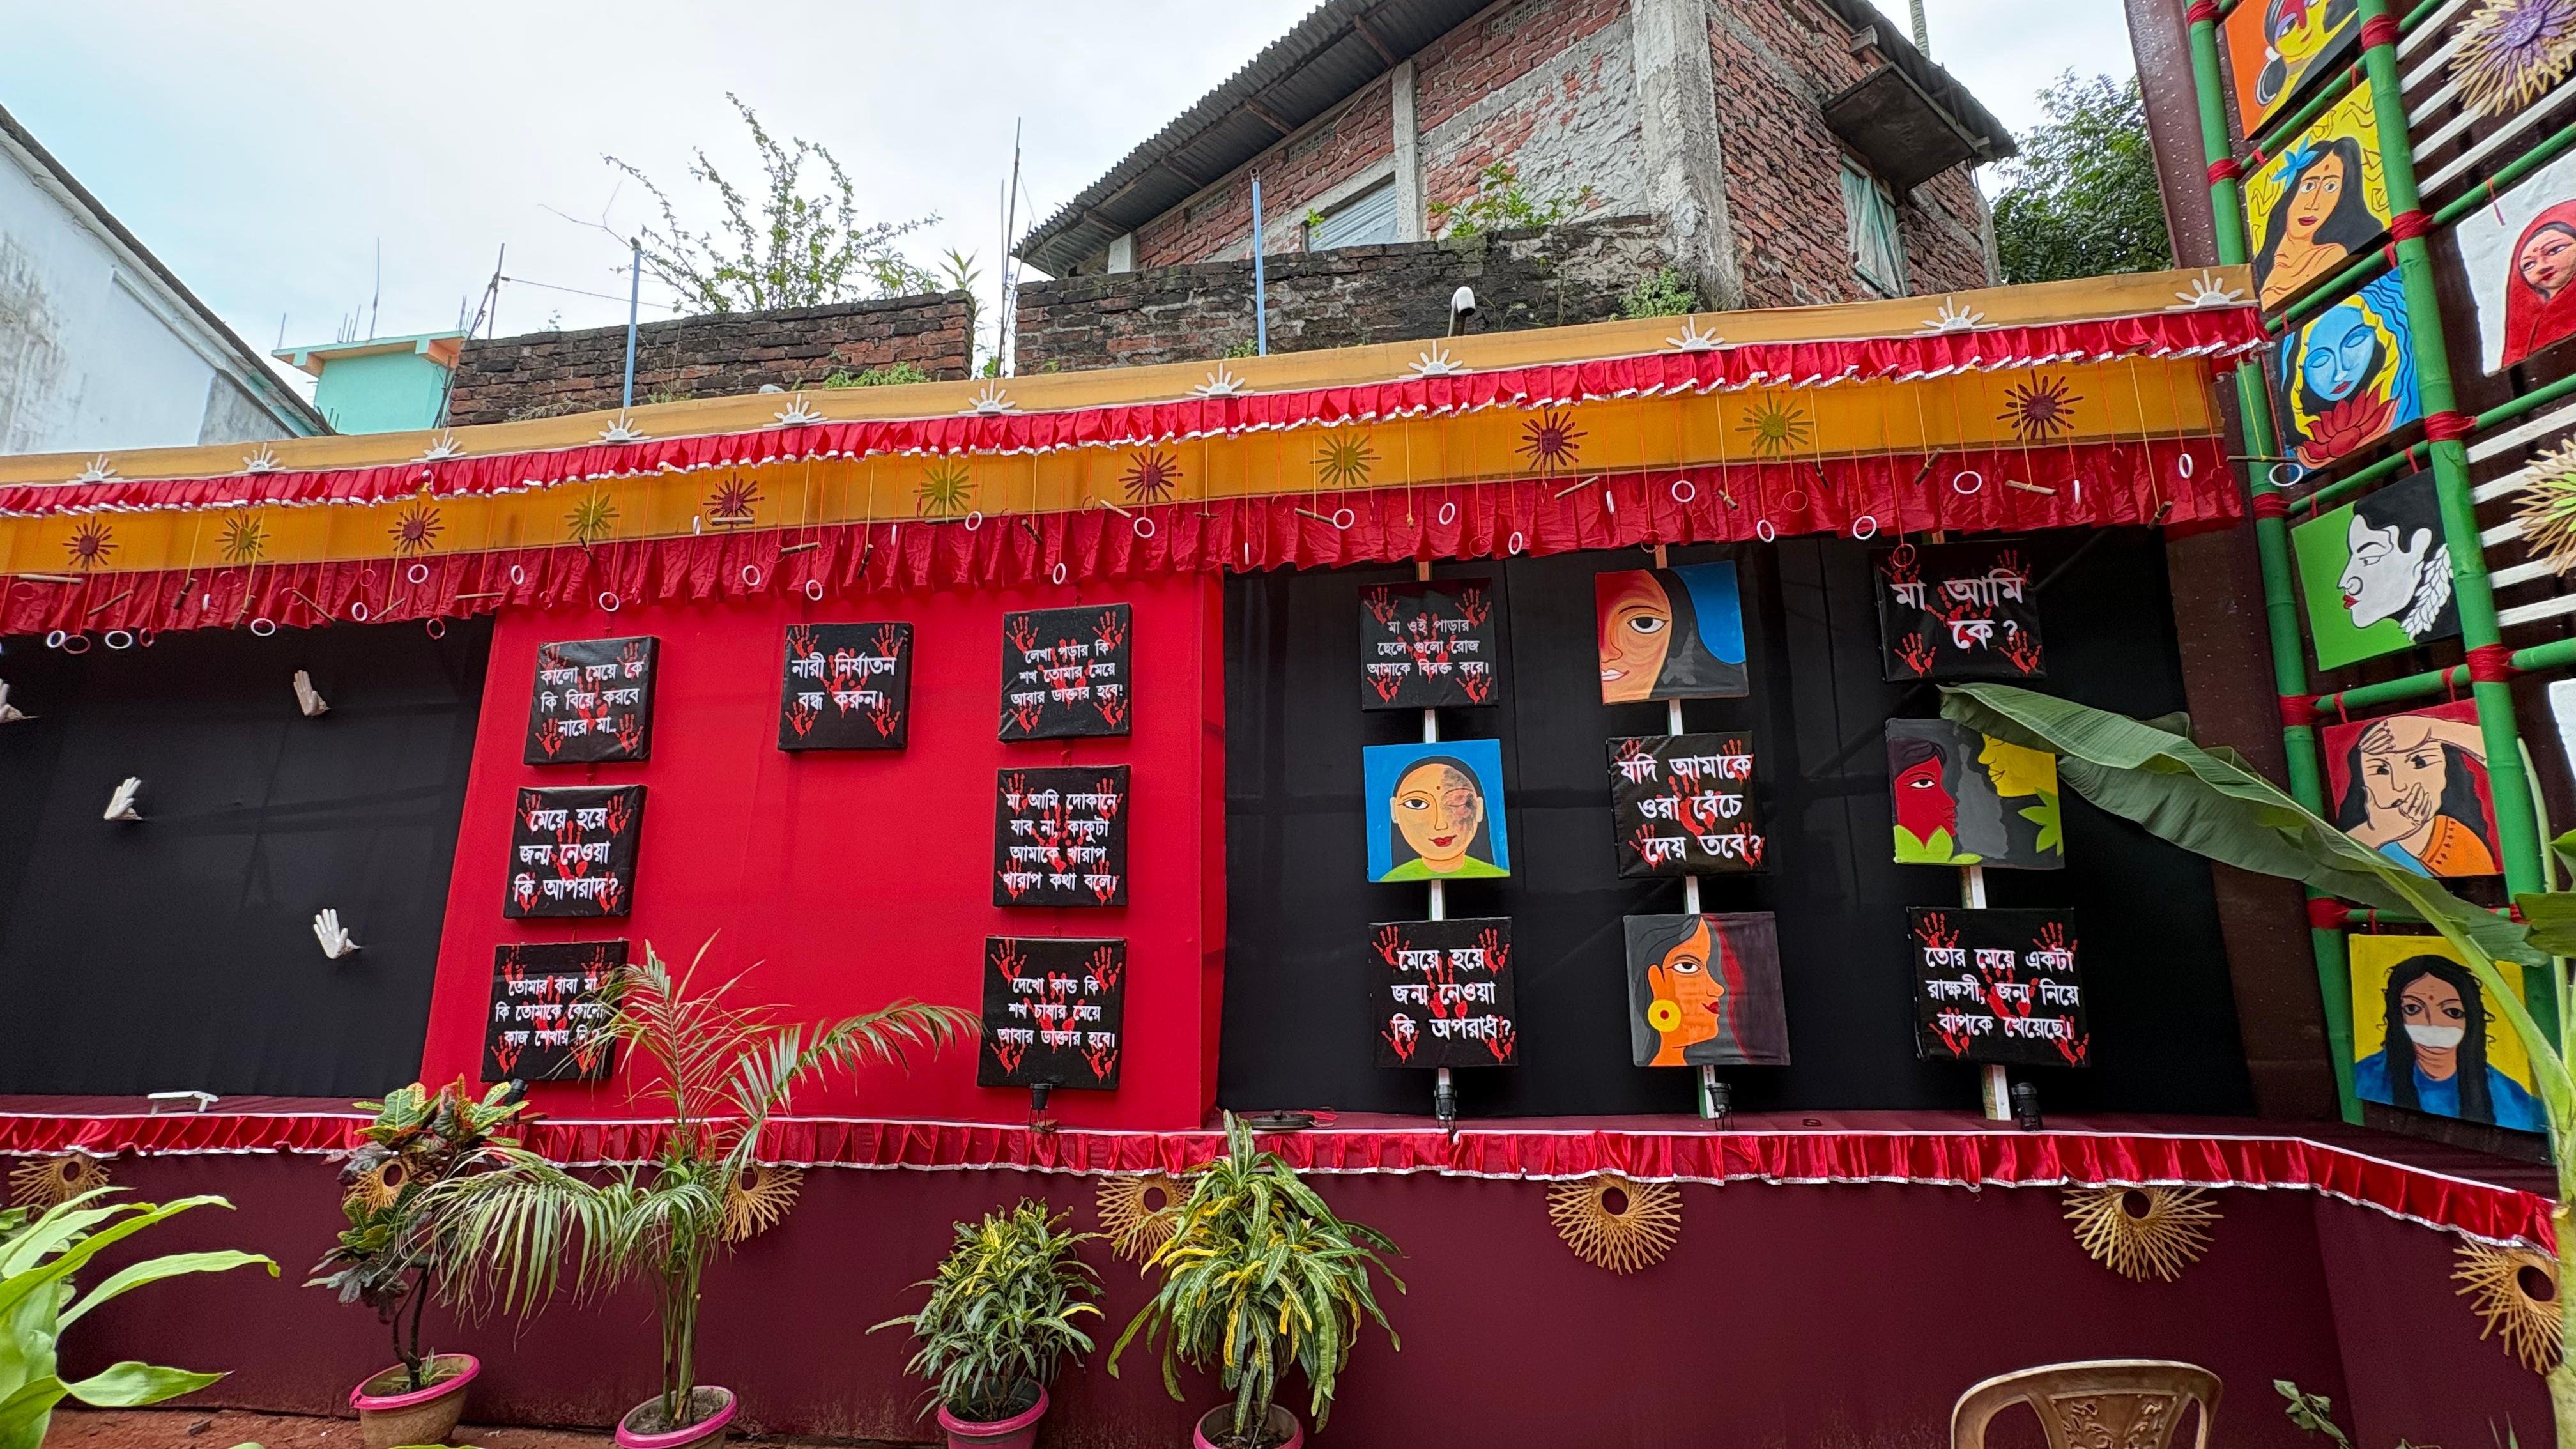 কালো মেয়ে কে
কি বিয়ে করবে
নারে মা..
মেয়ে হয়ে
জন্ম নেওয়া
কি আপরাদ?
তোমার বাবা মা
কি তোমাকে কোনো
কাজ শেখায় নি?
নারী নির্যাতন
বন্ধ করুন।
লেখা পড়ার কি
শখ তোমার মেয়ে
আবার ডাক্তার হবে!
মা আমি দোকানে
যাব না, কাকুটা
আমাকে খারাপ
খারাপ কথা বলে।
দেখো কান্ড কি
শখ চাষার মেয়ে
আবার ডাক্তার হবে।
মা ওই পাড়ার
ছেলে গুলো রোজ
আমাকে বিরক্ত করে।
মেয়ে হয়ে
জন্ম নেওয়া
কি অপরাধ?
যদি আমাকে
ওরা বেঁচে
দেয় তবে?
মা আমি
কে?
তোর মেয়ে একটা
রাক্ষসী, জন্ম নিয়ে
বাপকে খেয়েছে।